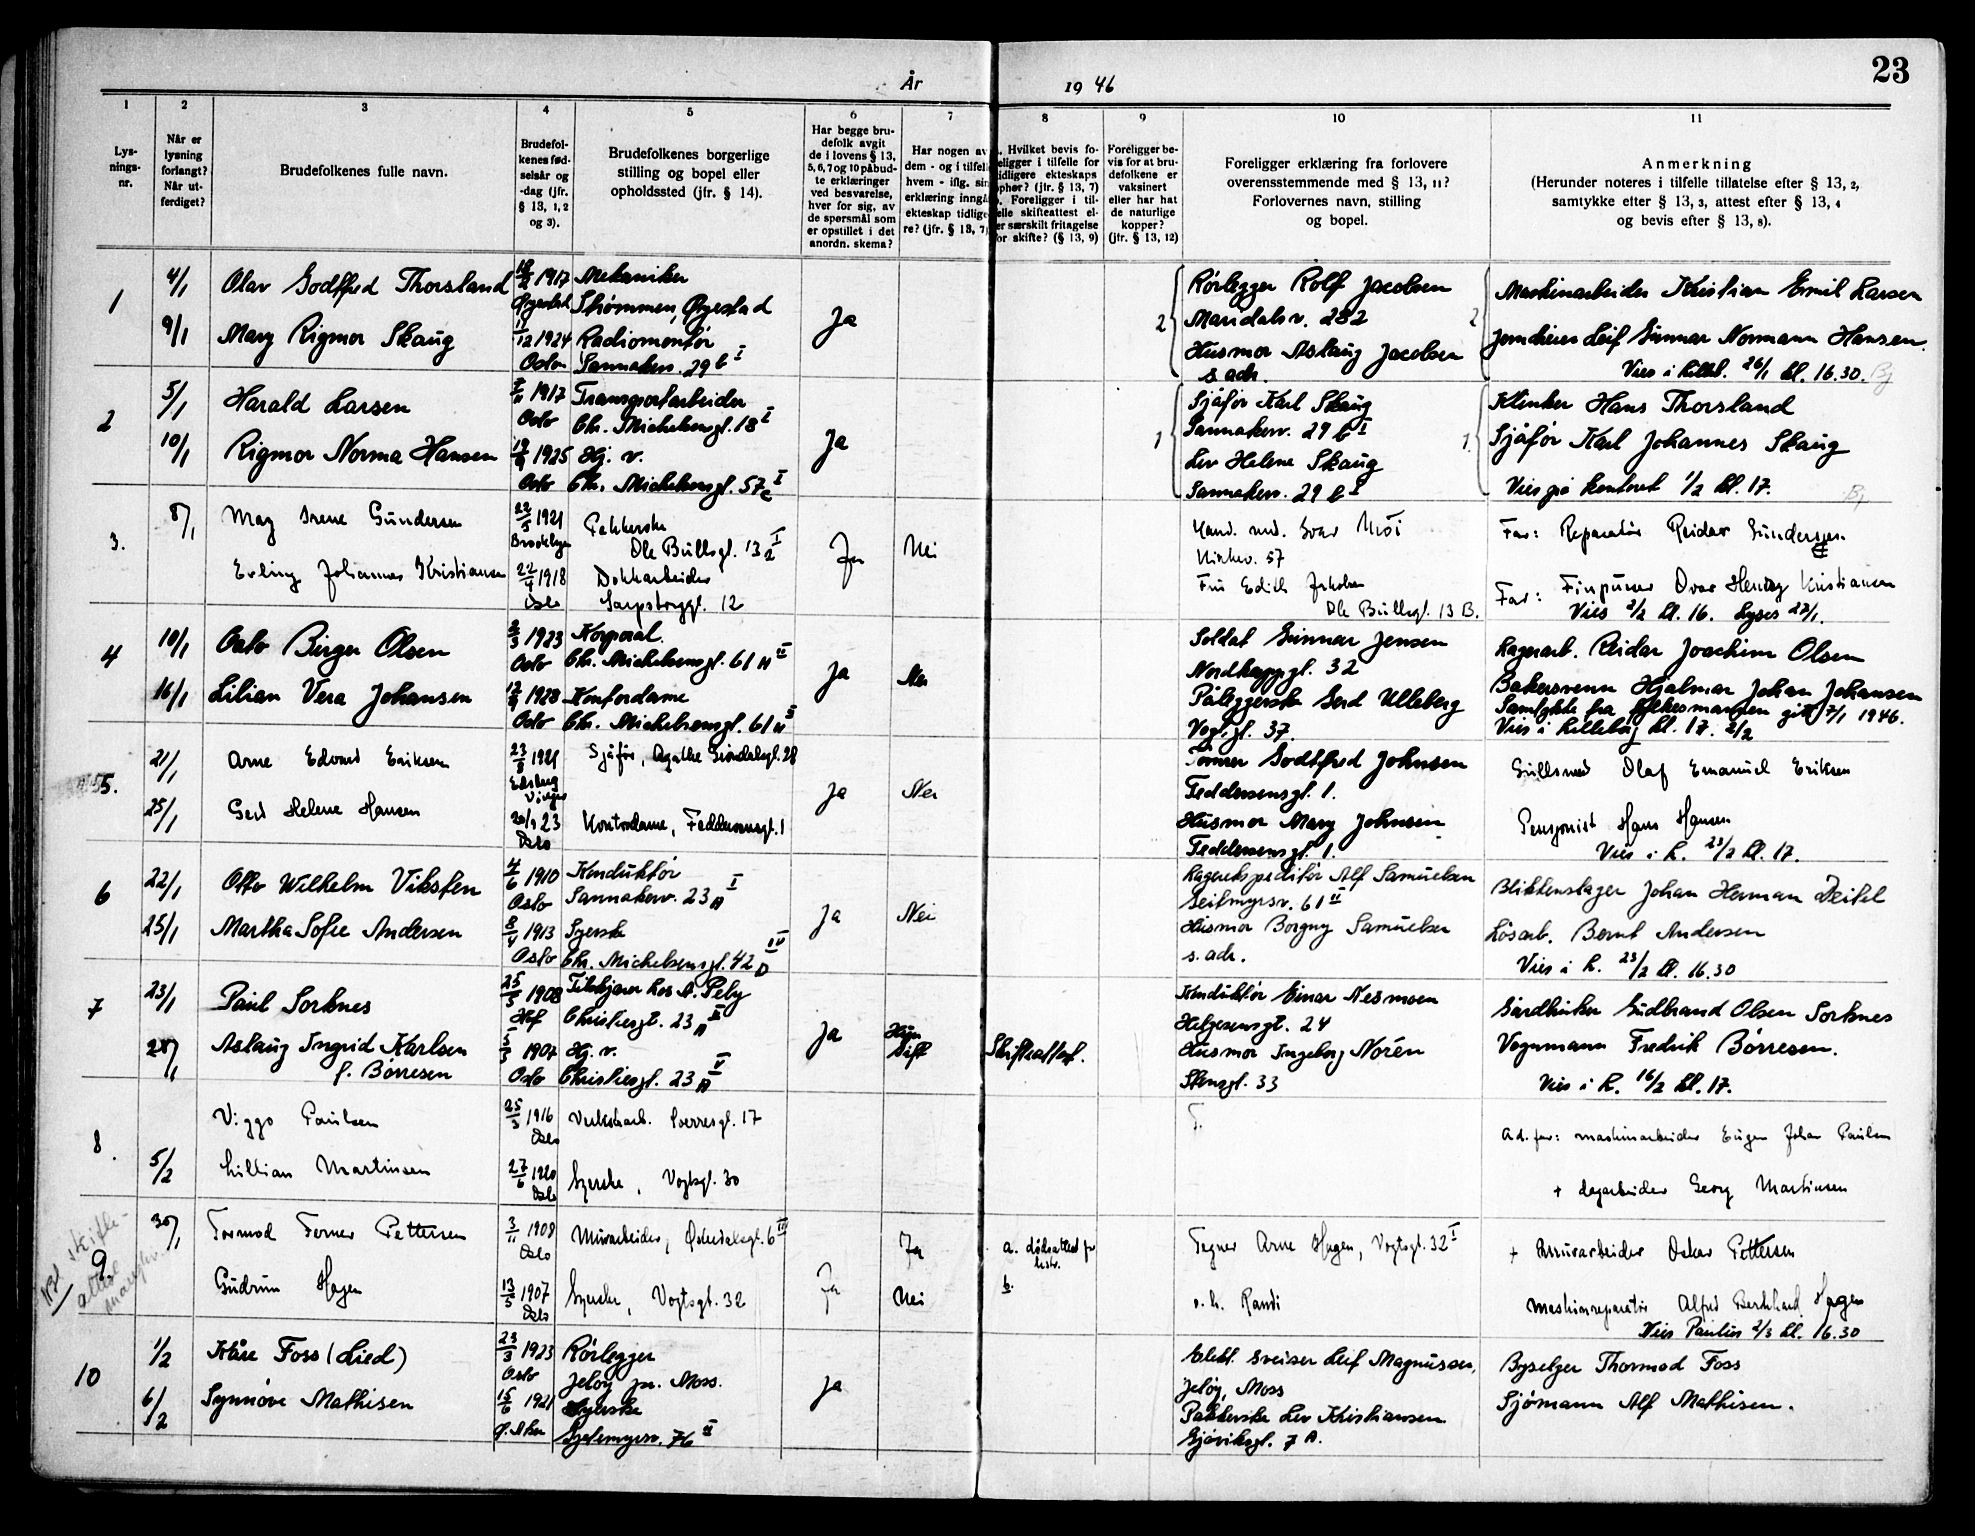 23
År 1946
1
2
3
4
5
6
7
8
9
10
11
Lys-
nings-
nr.
Når er
lysning
forlangt?
Når ut-
ferdiget?
Brudefolkenes fulle navn.
Brudefol-
kenes fød-
selsår og
-dag (jfr.
§ 13, 1,2
og 3).
Brudefolkenes borgerlige
stilling og bopel eller
opholdssted (jfr. § 14).
Har begge bru-
defolk avgit
de i lovens § 13,
5,6,7 og 10 påbud-
te erklæringer
ved besvarelse,
hver for sig, av
de spørsmål som
er opstillet i det
anordn. skema?
Har nogen av
dem - og i tilfel
hvem - iflg. sin
erklæring inngå
ekteskap tidlige
re? (jfr. § 13, 7)
Hvilket bevis fo-
religger i tilfelle for
tidligere ekteskaps
ophør? (jfr. § 13, 7)
Foreligger i til-
felle skifteattest el-
ler særskilt fritagelse
for skifte? (§ 13, 9)
Foreligger be-
vis for at bru-
defolkene er
vaksinert
eller har hat
de naturlige
kopper?
(jfr. § 13, 12)
Foreligger erklæring fra forlovere
overensstemmende med § 13, 11?
Forlovernes navn, stilling
og bopel.
Anmerkning
(Herunder noteres i tilfelle tillatelse efter § 13, 2,
samtykke efter § 13, 3, attest efter § 13, 4
og bevis efter § 13, 8).
1
4/1
Olav Godtfred Thorsland
1917 Mekaniker
Øyestad Strømmen, Øyestad
9/1
Mary Rigmor Skaug
1924 Radiomontør
Oslo Sannakerv. 29 b I
Ja
2
Rørlegger Rolf Jacobsen
Maridalsv. 282
Husmor Aslaug Jacobsen
s. adr.
2
Maskinarbeider Kristian Emil Larsen
Jerndreier Leif Gunnar Normann Hansen.
Vies i Lilleb. 26/1 kl. 16.30.
2
5/1
Harald Larsen
1917 Transportarbeider
Oslo Chr. Michelsensgt. 18 I
10/1
Rigmor Norma Hansen
1925 Hj. v.
Oslo Chr. Michelsensgt. 57c I
Ja
1
Sjåfør Karl Skaug
Sannakerv. 29 b I
Liv Helene Skaug
Sannakerv. 29 b I
1
Klinker Hans Thorsland
Sjåfør Karl Johannes Skaug
Vies på kontoret 1/2 kl. 17.
3.
8/1
May Irene Gundersen
22/5 1921
Brooklyn
Pakkerske
Ole Bullsgt. 13 I
Erling Johannes Kristiansen
1918
Oslo
Dokkarbeider
Sarpsborggt. 12
Ja
Nei
Kirkev. 57
Fru Edith Jakobsen
Ole Bullsgt. 13 B.
Far: Reparatør Reidar Gundersen
Far: Finpusser Ovar Henry Kristiansen
Vies 2/2 kl. 16. Lyses 27/1.
4
10/1
Oslo Birger Olsen
1923 Korporal.
Oslo Chr. Michelsensgt. 61 H II
16/1
Lilian Vera Johansen
1928 Kontordame
Oslo Chr. Michelsensgt. 61 H
Ja
Nei
Soldat Gunnar Jensen
Nordkappgt. 32
Påleggerske Gerd Ulleberg
Vogtsgt. 37.
Lagerarb. Reidar Joachim Olsen
Bakersvenn Hjalmar Johan Johansen
Samtykke fra fylkesmannen gitt 7/1 1946.
Vies i Lilleborg kl. 17. 2/2
5.
21/1
Arne Edvard Eriksen
23/8 1921
Sjåfør, Agathe Grøndalsgt. 28
25/1
Gerd Helene Hansen
23
Oslo
Kontordame, Feddersensgt. 1
Ja
Nei
Former Godtfred Johnsen
Feddersensgt. 1.
Husmor Mary Johnsen
Feddersensgt. 1.
Gullsmed Olaf Emanuel Eriksen
Pensjonist Hans Hansen
Vies i L. 23/2 kl. 17.
6
22/1
Otto Wilhelm Viksten
4/6 1910 Konduktør
Oslo Sannakerv. 23 A I
25/1
Martha Sofie Andersen
8/4 1913 Syerske
Oslo Chr. Michelsensgt. 42 D IV
Ja
Nei
Lagerekspeditør Alf Samuelsen
Geitmyrsv. 61 II
Husmor Borgny Samuelsen
s. adr.
Blikkenslager Johan Herman
Løsarb. Bernt Andersen
Vies i L. 23/2 kl. 16.30
7
23/1
Paul Sorknes
25/5 1908
Hof Christiesgt. 23 A II
28/1
Aslaug Ingrid Karlsen
f. Børresen
1907 Hj. v.
Oslo Christiesgt. 23 A V
Ja
Skifteattest.
Konduktør Einar Nesmoen
Helgesensgt. 24
Husmor Ingeborg Norén
Stensgt. 33
Gårdbruker Gudbrand Olsen Sorknes
Vognmann Fredrik Børresen.
Vies i L. 16/2 kl. 17.
8.
Viggo Paulsen
25/5 1916
Oslo
Verkstarb. Sverresgt. 17
5/2
Lillian Martinsen
27/6 1920
Oslo
Syerske, Vogtsgt. 30
Ad. far: maskinarbeider Eugen Johan Paulsen
+ lagarbeider Georg Martinsen
NB! skifte-
attest
mangler.
9.
30/1
Tormod Ferner Pettersen
3/11 1908
Oslo
Murarbeider, Østerdalsgt. 6 III
Gudrun Hagen
13/5 1907
Oslo
Syerske, Vogtsgt. 32
Ja
Ja
Nei
a. dødsattest for
hustr.
b.
Tegner Arne Hagen, Vogtsgt. 32 I
Randi
+ Murarbeider Oskar Pettersen
Maskinreparatør Alfred Bernhard Hagen
Vies Paulus 2/3 kl. 16.30
10
1/2
Kåre Foss (Lied)
23/3 1923 Rørlegger
Oslo Jeløy pr. Moss.
6/2
Synnøve Mathisen
15/6 1921 Syerske
Ø. Aker Geitemyrsv. 76 II
Ja
Elektr. sveiser Leif Magnussen,
Jeløy, Moss
Pakkerske Liv Kristiansen
Gjøviksgt. 7 A.
Byselger Thormod Foss
Sjømann Alf Mathisen.